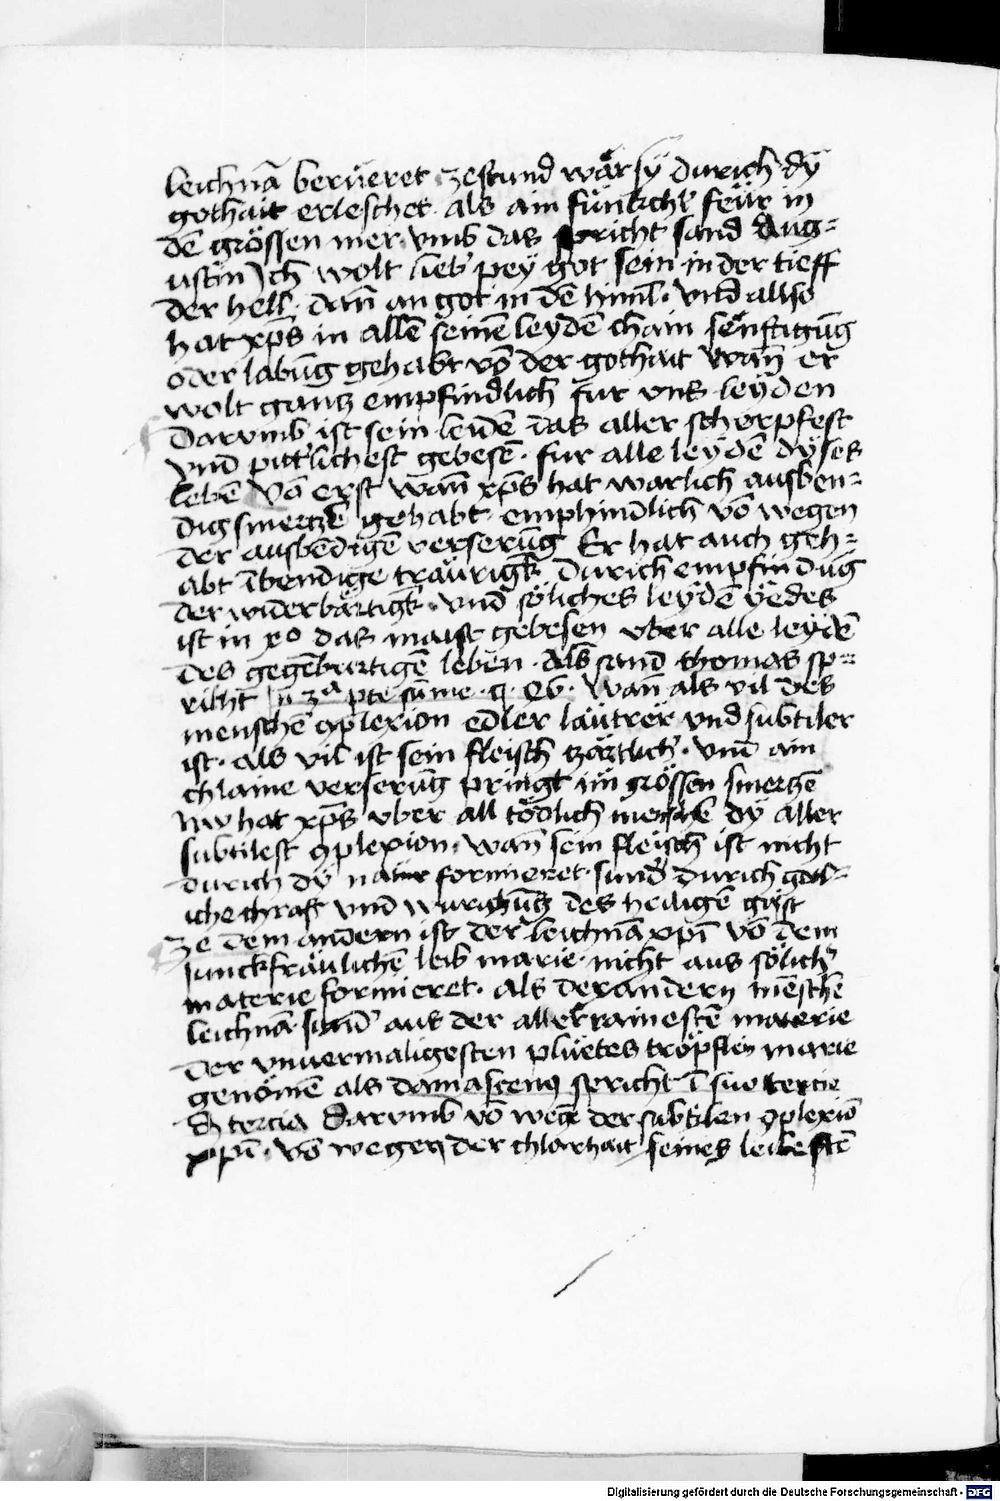 leichnā berüeret zestund wär sÿ durich dÿ
gothait erleschet als ain fünkchl feür in
dē grössen mer · vmb das spricht sand Aug=
ustin Jch wolt lieb' peÿ got sein in der tieff
der hell · dann an got in dē himl · Vnd allso
hat xp̄s in allē seinē leydē chain senftigūg
oder labūg gehabt vō der gothait wan̄ er
wolt gantz empfindlich für vns leÿden
Darvmb ist sein leidē das aller scherpfest
vnd pittlichest gebesē · für alle leÿdē dÿses
lebē Vō erst wan̄ xp̄s hat warlich ausben=
dig smertzē gehabt · emphindlich vō wegen
der ausbēdigē verserūg Er hat auch geh=
abt ībendige traürigk durich empfindūg
der widerbärtigk · vnd söliches leÿdē ÿedes
ist in xo das maist gebesen vber alle leÿdē
des gegēbürtigē leben · Als sand thomas sp=
richt in 3a pte sūme · q · 46 · Wan̄ als vil des
menschē 9plexion edler läutrer vnd subtiler
ist · als vil ist sein fleisch zärtlich' · vnd ain
chlaine verserūg pringt im grössen smerczē
Nw hat xp̄s vber all tödlich menschē dÿ aller
subtilest 9plexion · wan̄ sein fleisch ist nicht
durich dÿ natur formieret · sund' durich götl=
iche chraft vnd würchūg des heiligē gaist
Ze dem andern ist der leichnā xpī vō dem
junckfräulichē leib marie · nicht aus sölich'
materie formieret · als der andern mēschē
leichnā · sund' aus der aller rainestē materie
der vnuermaligesten pluetes tröpflein marie
genömē als damascen9 spricht ī suo tercie
di tercia Darvmb vō wegē der subtilen 9plexiō
xpī · vō wegen der chlarhait seines leibes Ze